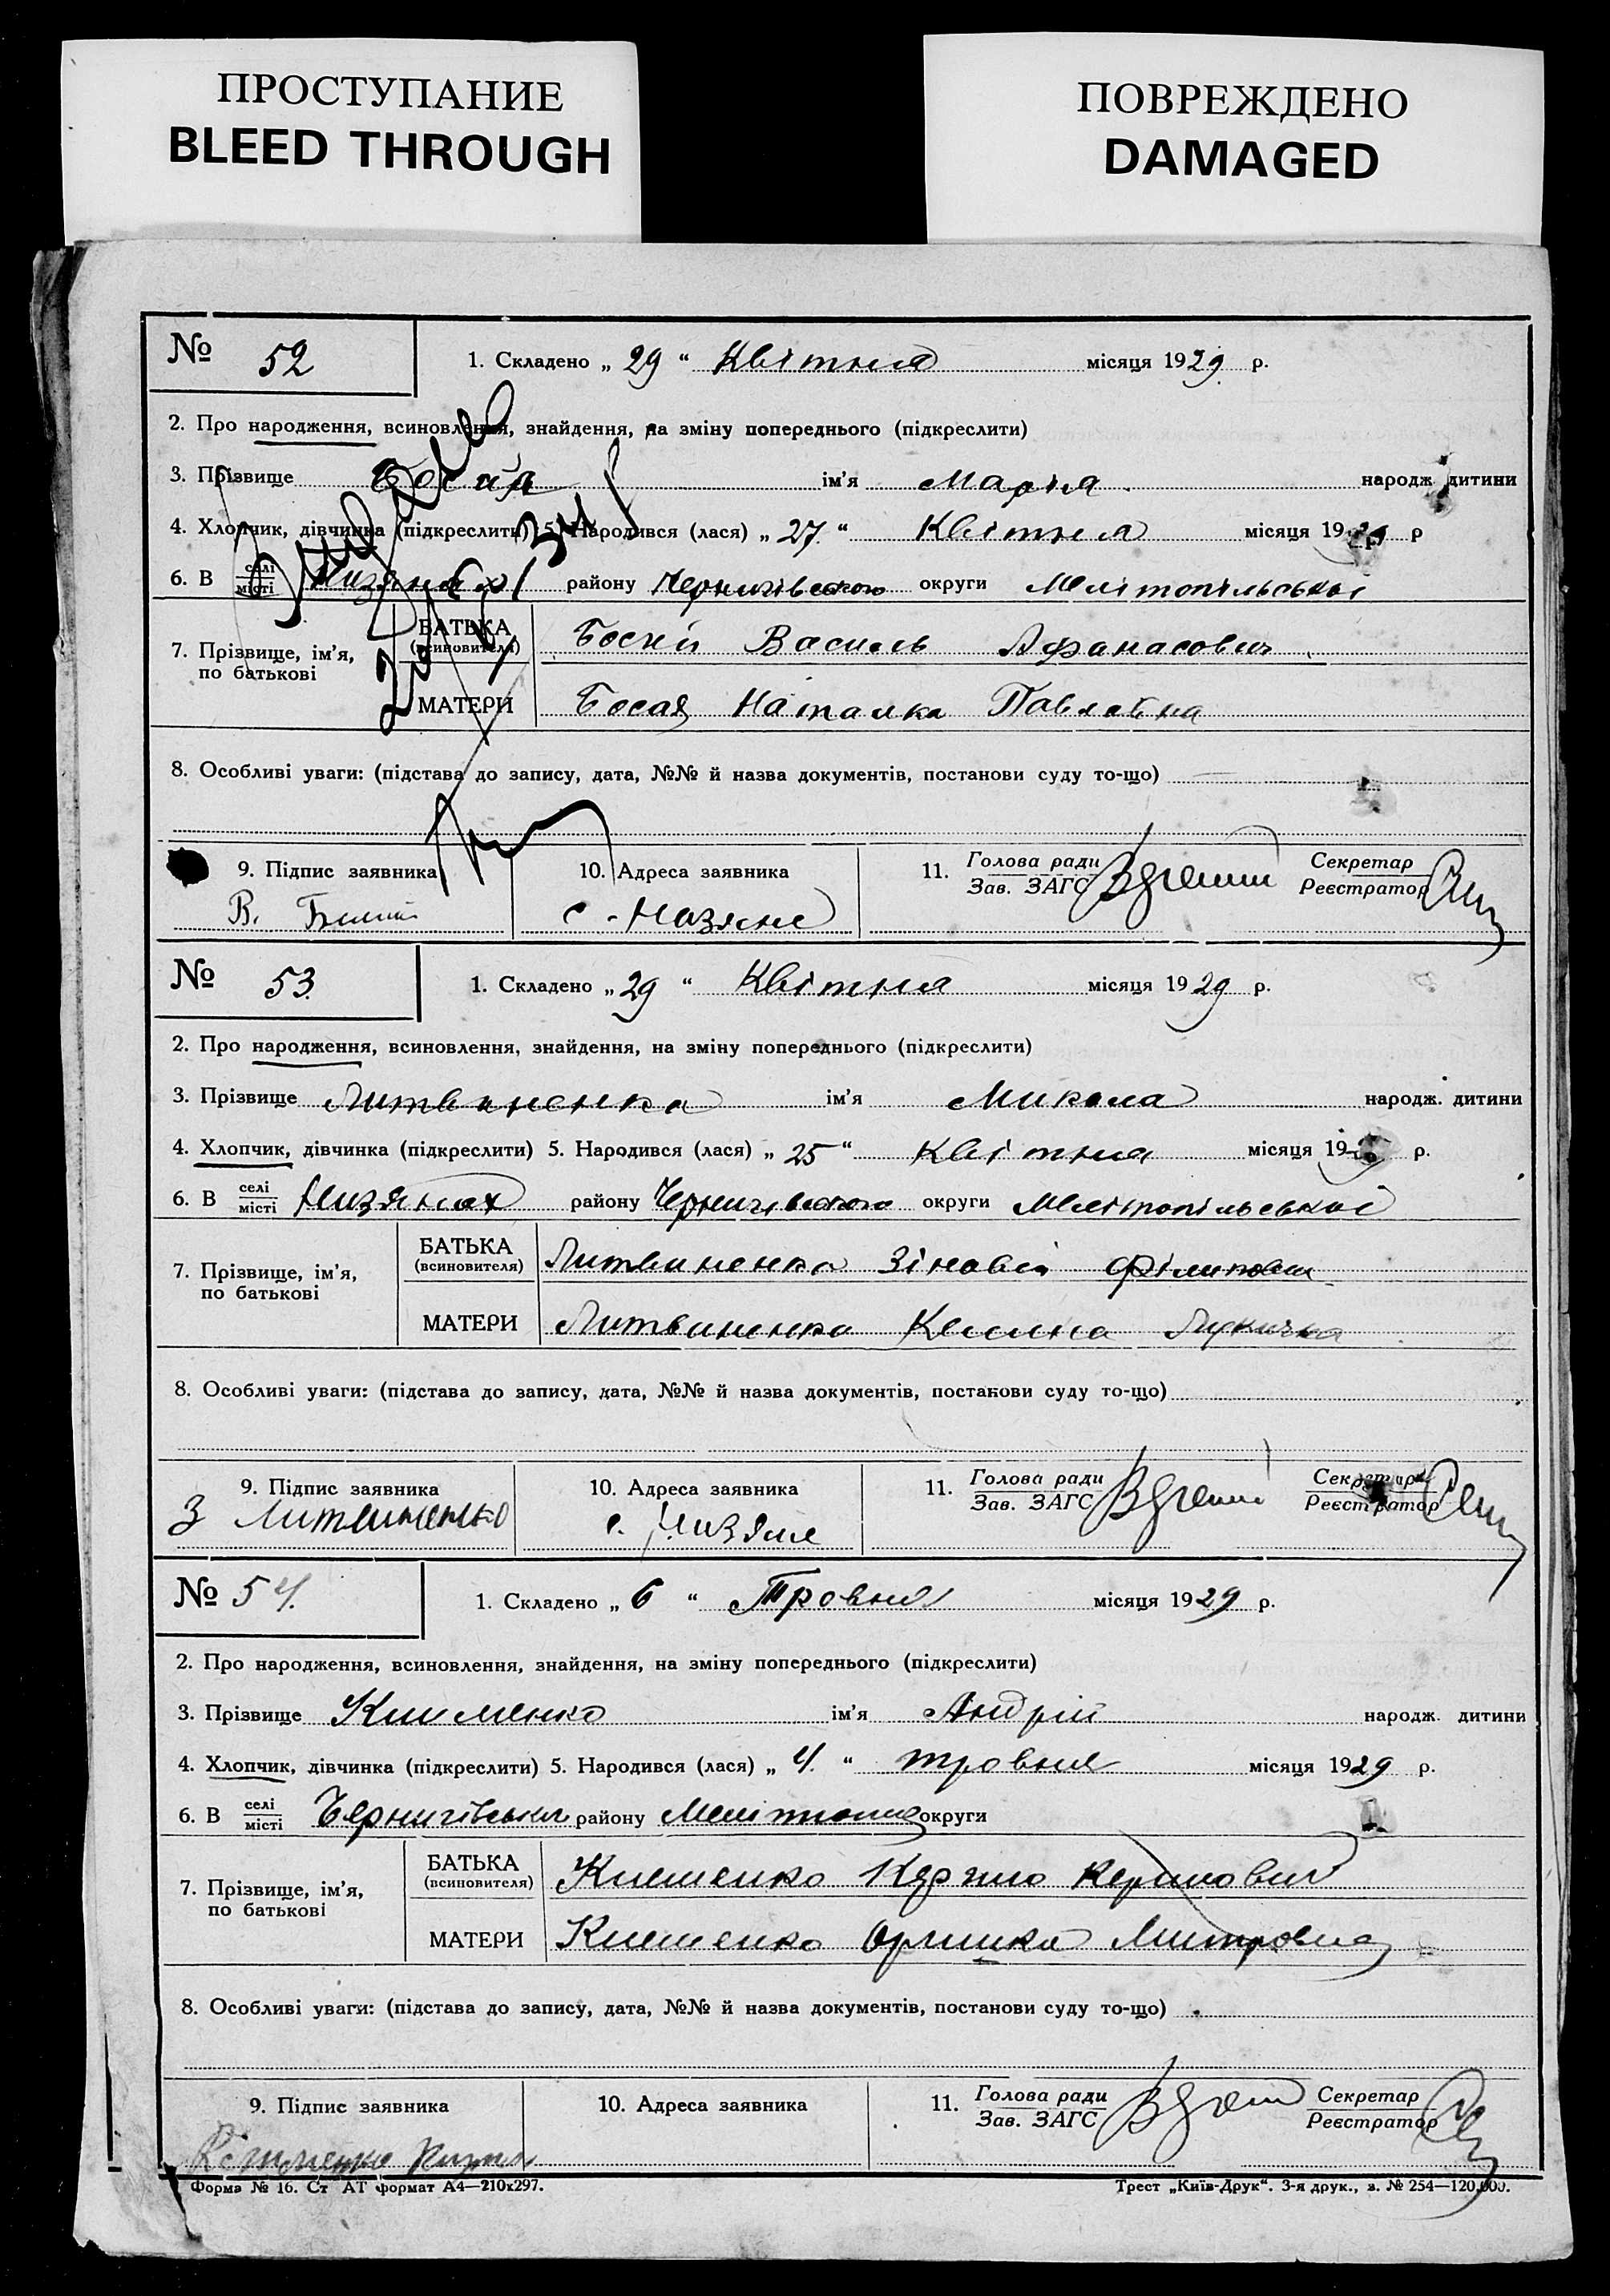 ПРОСТУПАНИЕ
BLEED THROUGH
ПОВРЕЖДЕНО
DAMAGED
№ 52
1. Складено „ 29 “ Квітня місяця 1929 р.
2. Про народження, всиновлення, знайдення, на зміну попереднього (підкреслити)
3. Прізвище Босая ім'я Марія народж. дитини
4. Хлопчик, дівчинка (підкреслити) 5. Народився (лася) „ 27 “ Квітня місяця 1929 р
6. В селі/місті Низянах району Чернигівського округи Мелітопільської
7. Прізвище, ім'я, по батькові
БАТЬКА (всиновителя) Босий Василь Афанасович
МАТЕРИ Босая Наталка Павловна
8. Особливі уваги: (підстава до запису, дата, №№ й назва документів, постанови суду то-що)
9. Підпис заявника
10. Адреса заявника
11. Голова ради/Зав. ЗАГС Секретар/Реєстратор
В.
с.
№ 53
1. Складено „ 29 “ Квітня місяця 1929 р.
2. Про народження, всиновлення, знайдення, на зміну попереднього (підкреслити)
3. Прізвище Литвиненко ім'я Микола народж. дитини
4. Хлопчик, дівчинка (підкреслити) 5. Народився (лася) „ 25 “ Квітня місяця 19 р.
6. В селі/місті Низянах району Чернигівського округи Мелітопільської
7. Прізвище, ім'я, по батькові
БАТЬКА (всиновителя) Литвиненко Зіновій Філипович
МАТЕРИ Литвиненко Килина
8. Особливі уваги: (підстава до запису, дата, №№ й назва документів, постанови суду то-що)
9. Підпис заявника
10. Адреса заявника
11. Голова ради/Зав. ЗАГС Секретар/Реєстратор
З Литвиненко
с. Низяне
№ 54.
1. Складено „ 6 “ Травня місяця 1929 р.
2. Про народження, всиновлення, знайдення, на зміну попереднього (підкреслити)
3. Прізвище Клименко ім'я Андрій народж. дитини
4. Хлопчик, дівчинка (підкреслити) 5. Народився (лася) „ 4. “ травня місяця 1929 р.
6. В селі/місті району округи
7. Прізвище, ім'я, по батькові
БАТЬКА (всиновителя) Клименко
МАТЕРИ Клименко Митровна
8. Особливі уваги: (підстава до запису, дата, №№ й назва документів, постанови суду то-що)
9. Підпис заявника
10. Адреса заявника
11. Голова ради/Зав. ЗАГС Секретар/Реєстратор
Форма № 16. Ст АТ формат А4—210х297.
Трест „Київ-Друк“. 3-я друк., з. № 254—120.000.